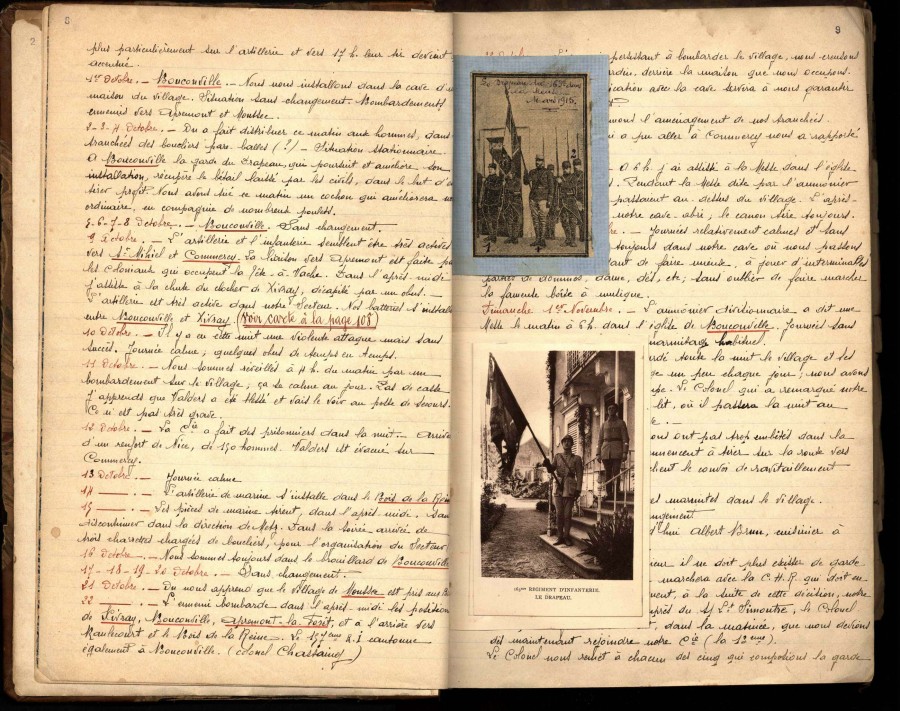 8
plus particulièrement sur l'artillerie et vers 17 h. leur tir devint
accentué.
1er Octobre. — Bouconville. — Nous nous installons dans la cave d'u
maison du village. Situation sans changement. Bombardements
ennemis vers Apremont et Monsec.
2-3-4 Octobre. — On a fait distribuer ce matin aux hommes, dans
tranchées des boucliers pare-balles (?) — Situation stationnaire.
A Bouconville la garde du Drapeau, qui poursuit et améliore son
installation, récupère le bétail laissé par les civils, dans le but d'e
tirer profit. Nous avons tué ce matin un cochon qui améliorera n
ordinaire, en compagnie de nombreux poulets.
5-6-7-8 Octobre. — Bouconville. Sans changement.
9 Octobre. — L'artillerie et l'infanterie semblent être très actives
vers St Mihiel et Commercy. La liaison vers Apremont est faite pa
les coloniaux qui occupent la Tête à Vache. Dans l'après-midi
j'assiste à la chute du clocher de Xivray, décapité par un obus. —
L'artillerie est très active dans notre Secteur. Nos batteries s'install
entre Bouconville et Xivray. (Voir carte à la page 108)
10 Octobre. — Il y a eu cette nuit une violente attaque mais sans
succès. Journée calme; quelques obus de temps en temps.
11 Octobre. — Nous sommes réveillés à 4 h. du matin par un
bombardement sur le village; ça se calme au jour. Pas de casse
J'apprends que Valders a été blessé et vais le voir au poste de secours.
Ce n'est pas très grave.
12 Octobre. — La Cie a fait des prisonniers dans la nuit. — Arrivée
d'un renfort de Nice, de 150 hommes. Valders est évacué sur
Commercy.
13 Octobre. — Journée calme
14 — . — L'artillerie de marine s'installe dans le Bois de la Rein
15 — . — Les pièces de marine tirent, dans l'après-midi. San
discontinuer dans la direction de Metz. Dans la soirée arrivée de
trois charrettes chargées de boucliers, pour l'organisation du Secteur.
16 Octobre. — Nous sommes toujours dans le brouillard de Bouconville
17-18-19-20 Octobre. — Sans changement.
21 Octobre. — On nous apprend que le village de Monsec est pris aux B
22 — . — L'ennemi bombarde dans l'après-midi les positions
de Xivray, Bouconville, Apremont-la-Forêt, et à l'arrière vers
Mandecourt et le Bois de la Reine. Le R.I. cantonne
également à Bouconville. (colonel Chassaing)
9
persistant à bombarder le village, nous creusons
derrière la maison que nous occupons.
ication avec la cave servira à nous garantir
ment l'aménagement de nos tranchées.
n a pu aller à Commercy nous a rapporté
A 6 h. j'ai assisté à la Messe dans l'église
. Pendant la Messe dite par l'aumonier
passaient au dessus du village. L'après-
notre cave-abri; le canon tire toujours.
— Journées relativement calmes et sans
toujours dans notre cave où nous passons
tant de faire mieux, à jouer d'interminables
parties de dominos, dame, dés, etc; sans oublier de faire marcher
la fameuse boîte à musique.
Dimanche 1er Novembre. — L'aumonier divisionnaire a dit une
Messe le matin à 6 h. dans l'église de Bouconville. Journées sans
marmitage habituel.
rdé toute la nuit le village et ses
ge un peu chaque jour; nous avons
Le Colonel qui a remarqué notre
lit, où il passera la nuit au
ous ont pas trop embêtés dans la
mmencent à tirer sur la route vers
le convoi de ravitaillement
marmites dans le village.
ngement
d'hui Albert Brun, cuisinier à
eur il ne doit plus exister de garde
marchera avec la C.H.R. qui doit en
ment, à la suite de cette décision, notre
près du St Lt Timontre, le Colonel
, dans la matinée, que nous devions
dès maintenant rejoindre notre Cie (la 12ème).
Le Colonel nous remet à chacun des cinq qui composions la garde
Le Drapeau du 163eme
Avril 1915.
163me RÉGIMENT D'INFANTERIE.
LE DRAPEAU.